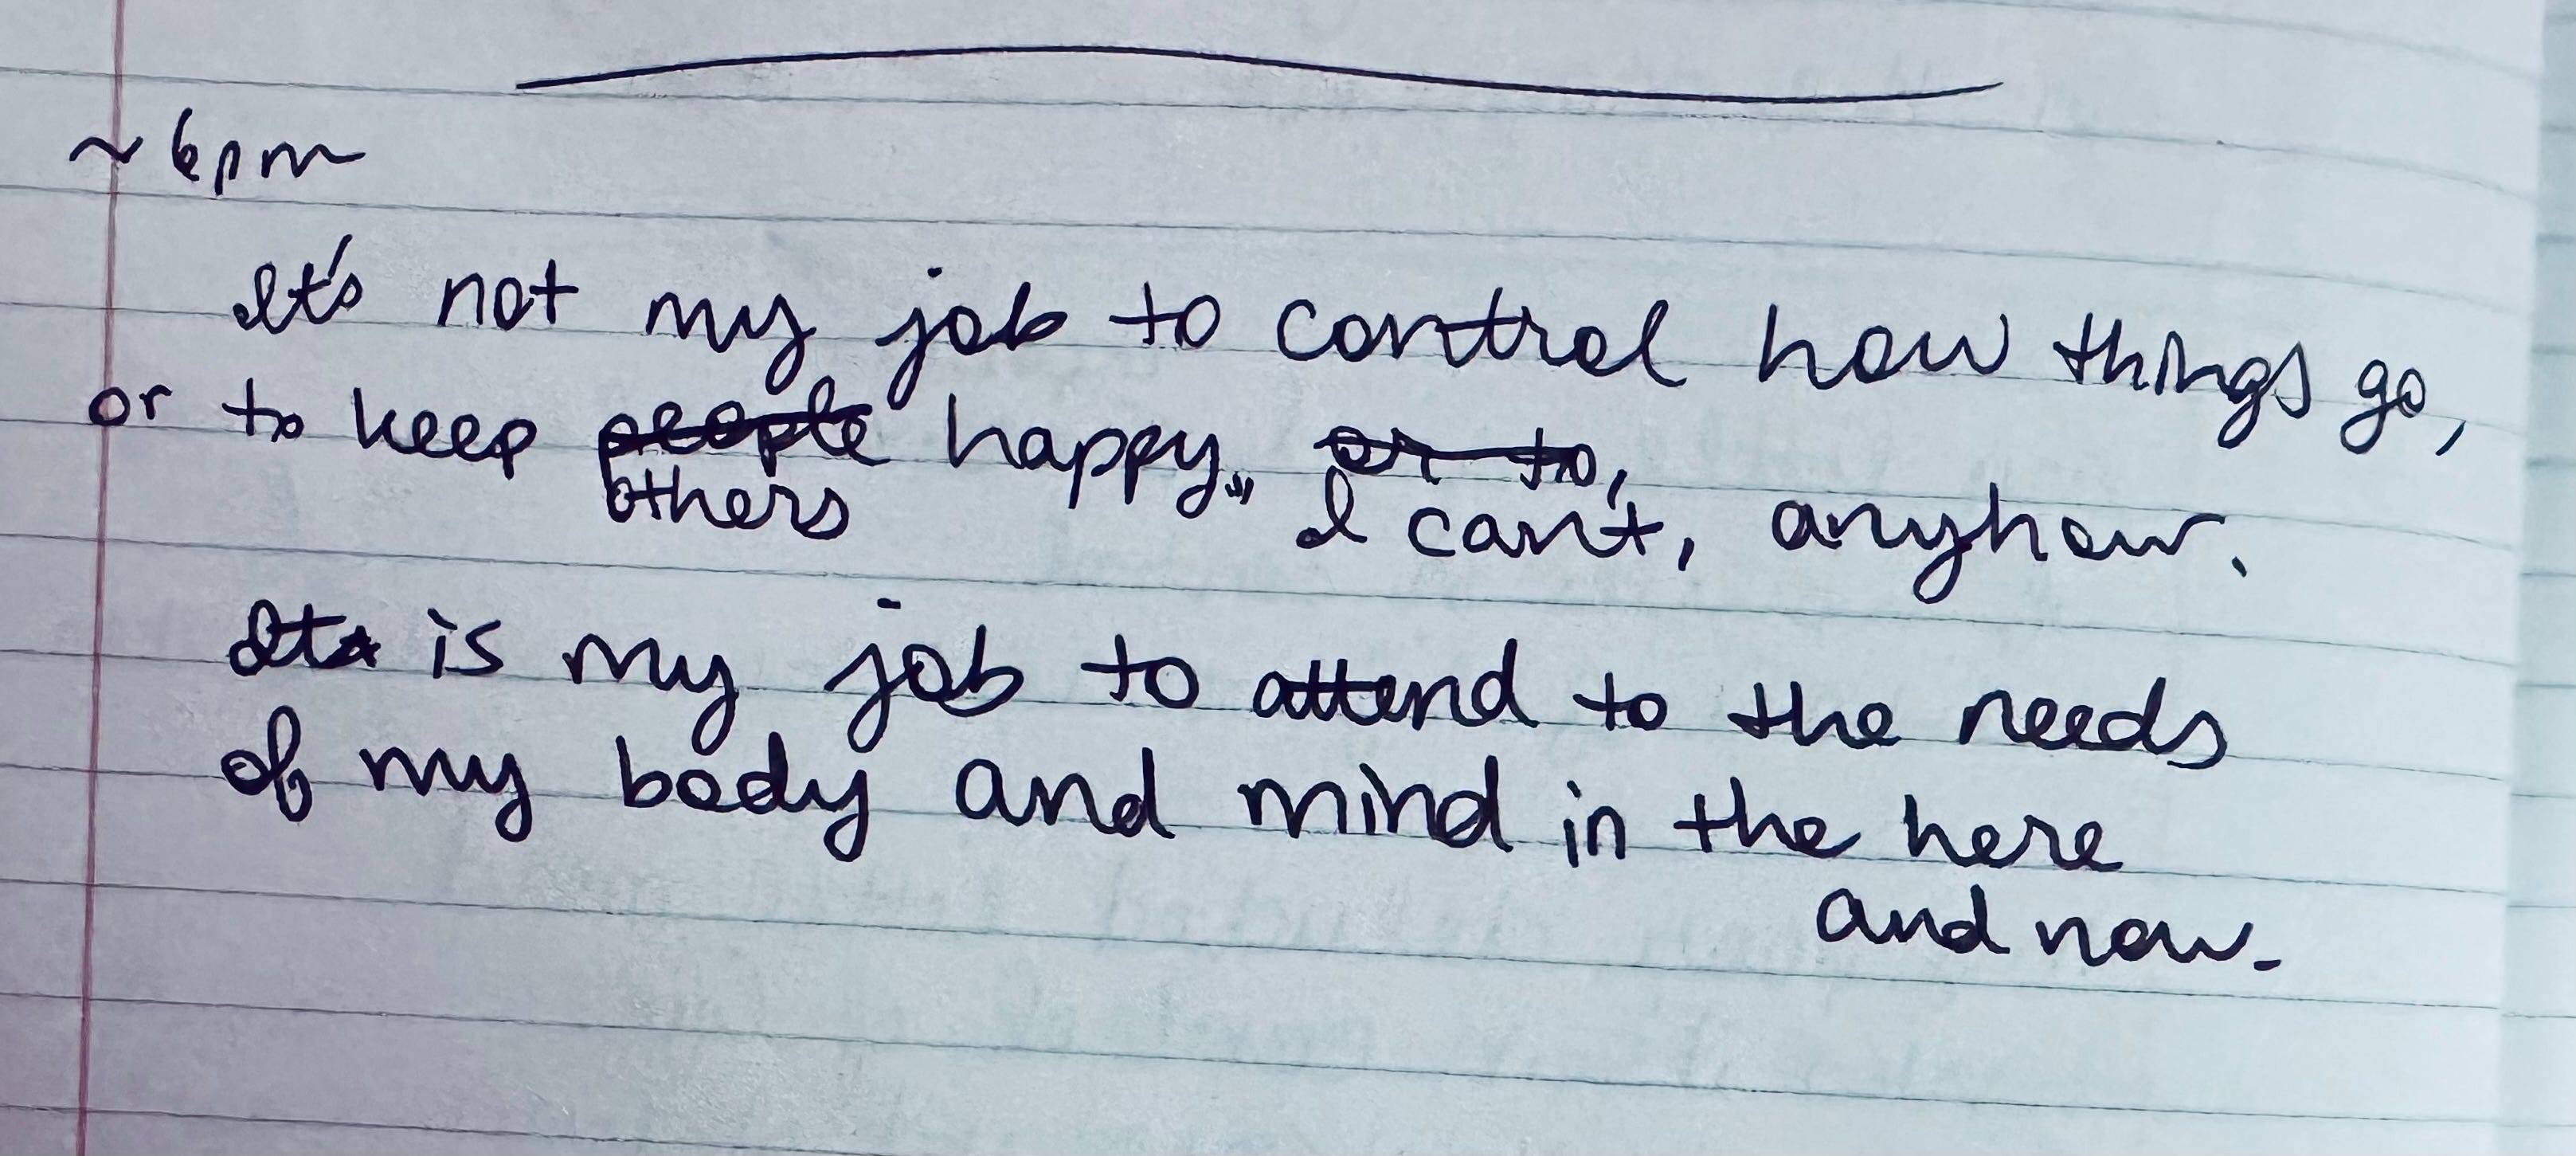 ~ 6pm
It's not my job to control how things go,
or to keep people happy, or to,
others I can't, anyhow.
It is my job to attend to the needs
of my body and mind in the here
and now.